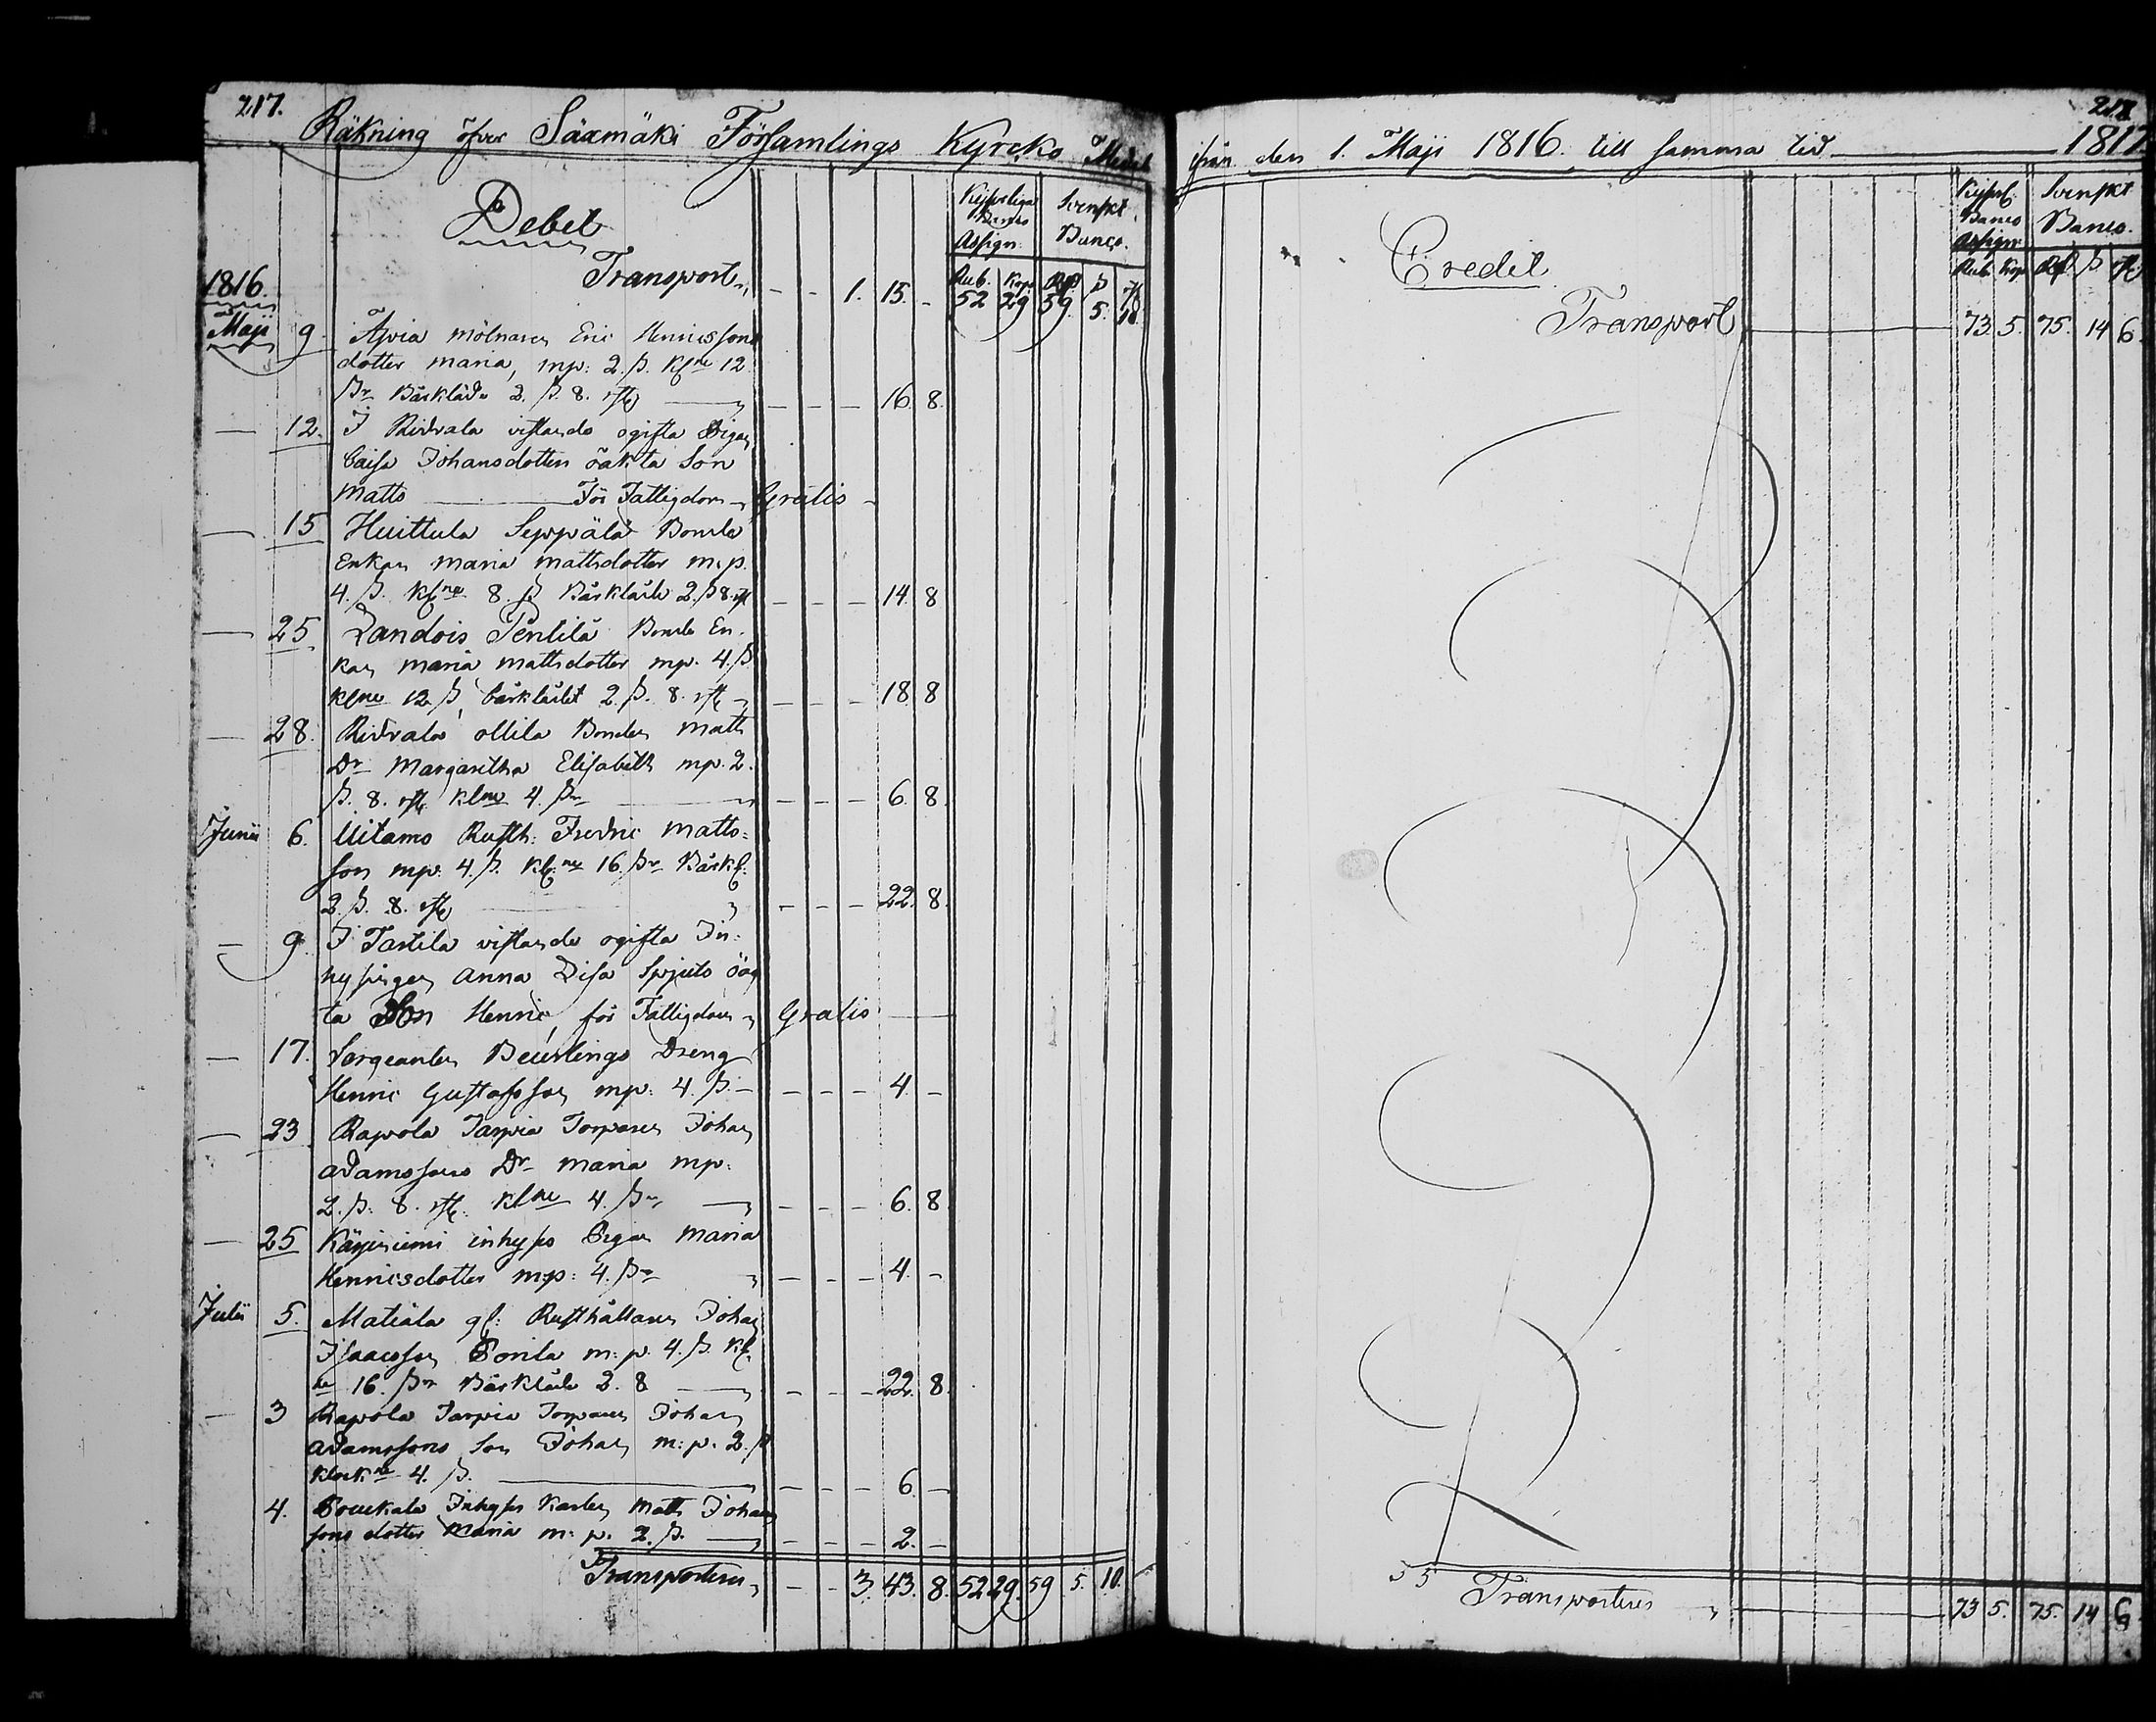 217.
Räkning öfver Sãxmäki Församlings Kyrcko Medel
Debet
Kejserliga Banco Assign:
Svenskt Banco.
Rub. Kop. Rd ß
Transport 1. 15. - 52 29 59. 5. 10.
1816.
Maji 9. Apia mölnaren Eric Henricssons
dotter Maria, mp: 2. ß. Klne 12
ßr Bårkläde 2. ß. 8. rst 16. 8.
12. I Ridvala vistande ogifta Pigan
Caisa Johansdotters oäkta Son
Matts För Fattigdom Gratis
15 Huittula Seppälä Bonde
Enkan Maria Mattsdotter m.p.
4. ß. Klne 8. ß Bårkläde 2. ß 8. rst 14. 8
25 Landois Pentilä Bonde En-
kan Maria Mattsdotter mp. 4. ß
Klne 12 ß, bårklädet 2. ß. 8. rst 18 8
28. Ridvala Ollila Bonden Matts
Dr Margaretha Elisabeth mp. 2.
ß. 8. rst Klne 4. ßr 6. 8.
Junii 6. Uitamo Rusth: Fredric Matts-
son mp. 4. ß. Klne 16. ßr Bårkl:
2. ß. 8. rst 22. 8.
9. I Tartila vistande ogifta In-
hysingen Anna Lisa Spjuts oäg
ta Son Henric, för Fattigdom Gratis
17. Sergeanten Beurlings Dreng
Henric Gustafsson mp: 4. ß. 4. -
23 Rapola Jaspia Torparen Johan
Adamssons Dr Maria mp:
2. ß. 8. rst. Klne 4. ßr 6. 8
25 Kärjeniemi inhyses Pigan Maria
Henricsdotter mp: 4. ßr 4. -
Julii 5. Matiala gl: Rusthållaren Johan
Isaacsson Sonila m: p. 4. ß. Kl.
ne 16. ßr Bårkläde 2. 8 22. 8.
3 Rapola Jaspia Torparen Johan
Adamssons Son Johan m: p. 2. ß
Klockne 4. ß. 6. -
4. Inhyses Karlen Matts Johans
sons dotter Maria m: p. 2. ß. 2. -
Transporteres 3. 43. 8. 52 29. 59 5. 10.
218
ifrån den 1. Maji 1816. till samma tid 1817
Credit
Kejserl: Banco Assign:
Svenskt Banco.
Rub. Kop. Rd ß
Transport 73. 5. 75. 14 6.
55
Transporteres 73 5. 75. 14 6